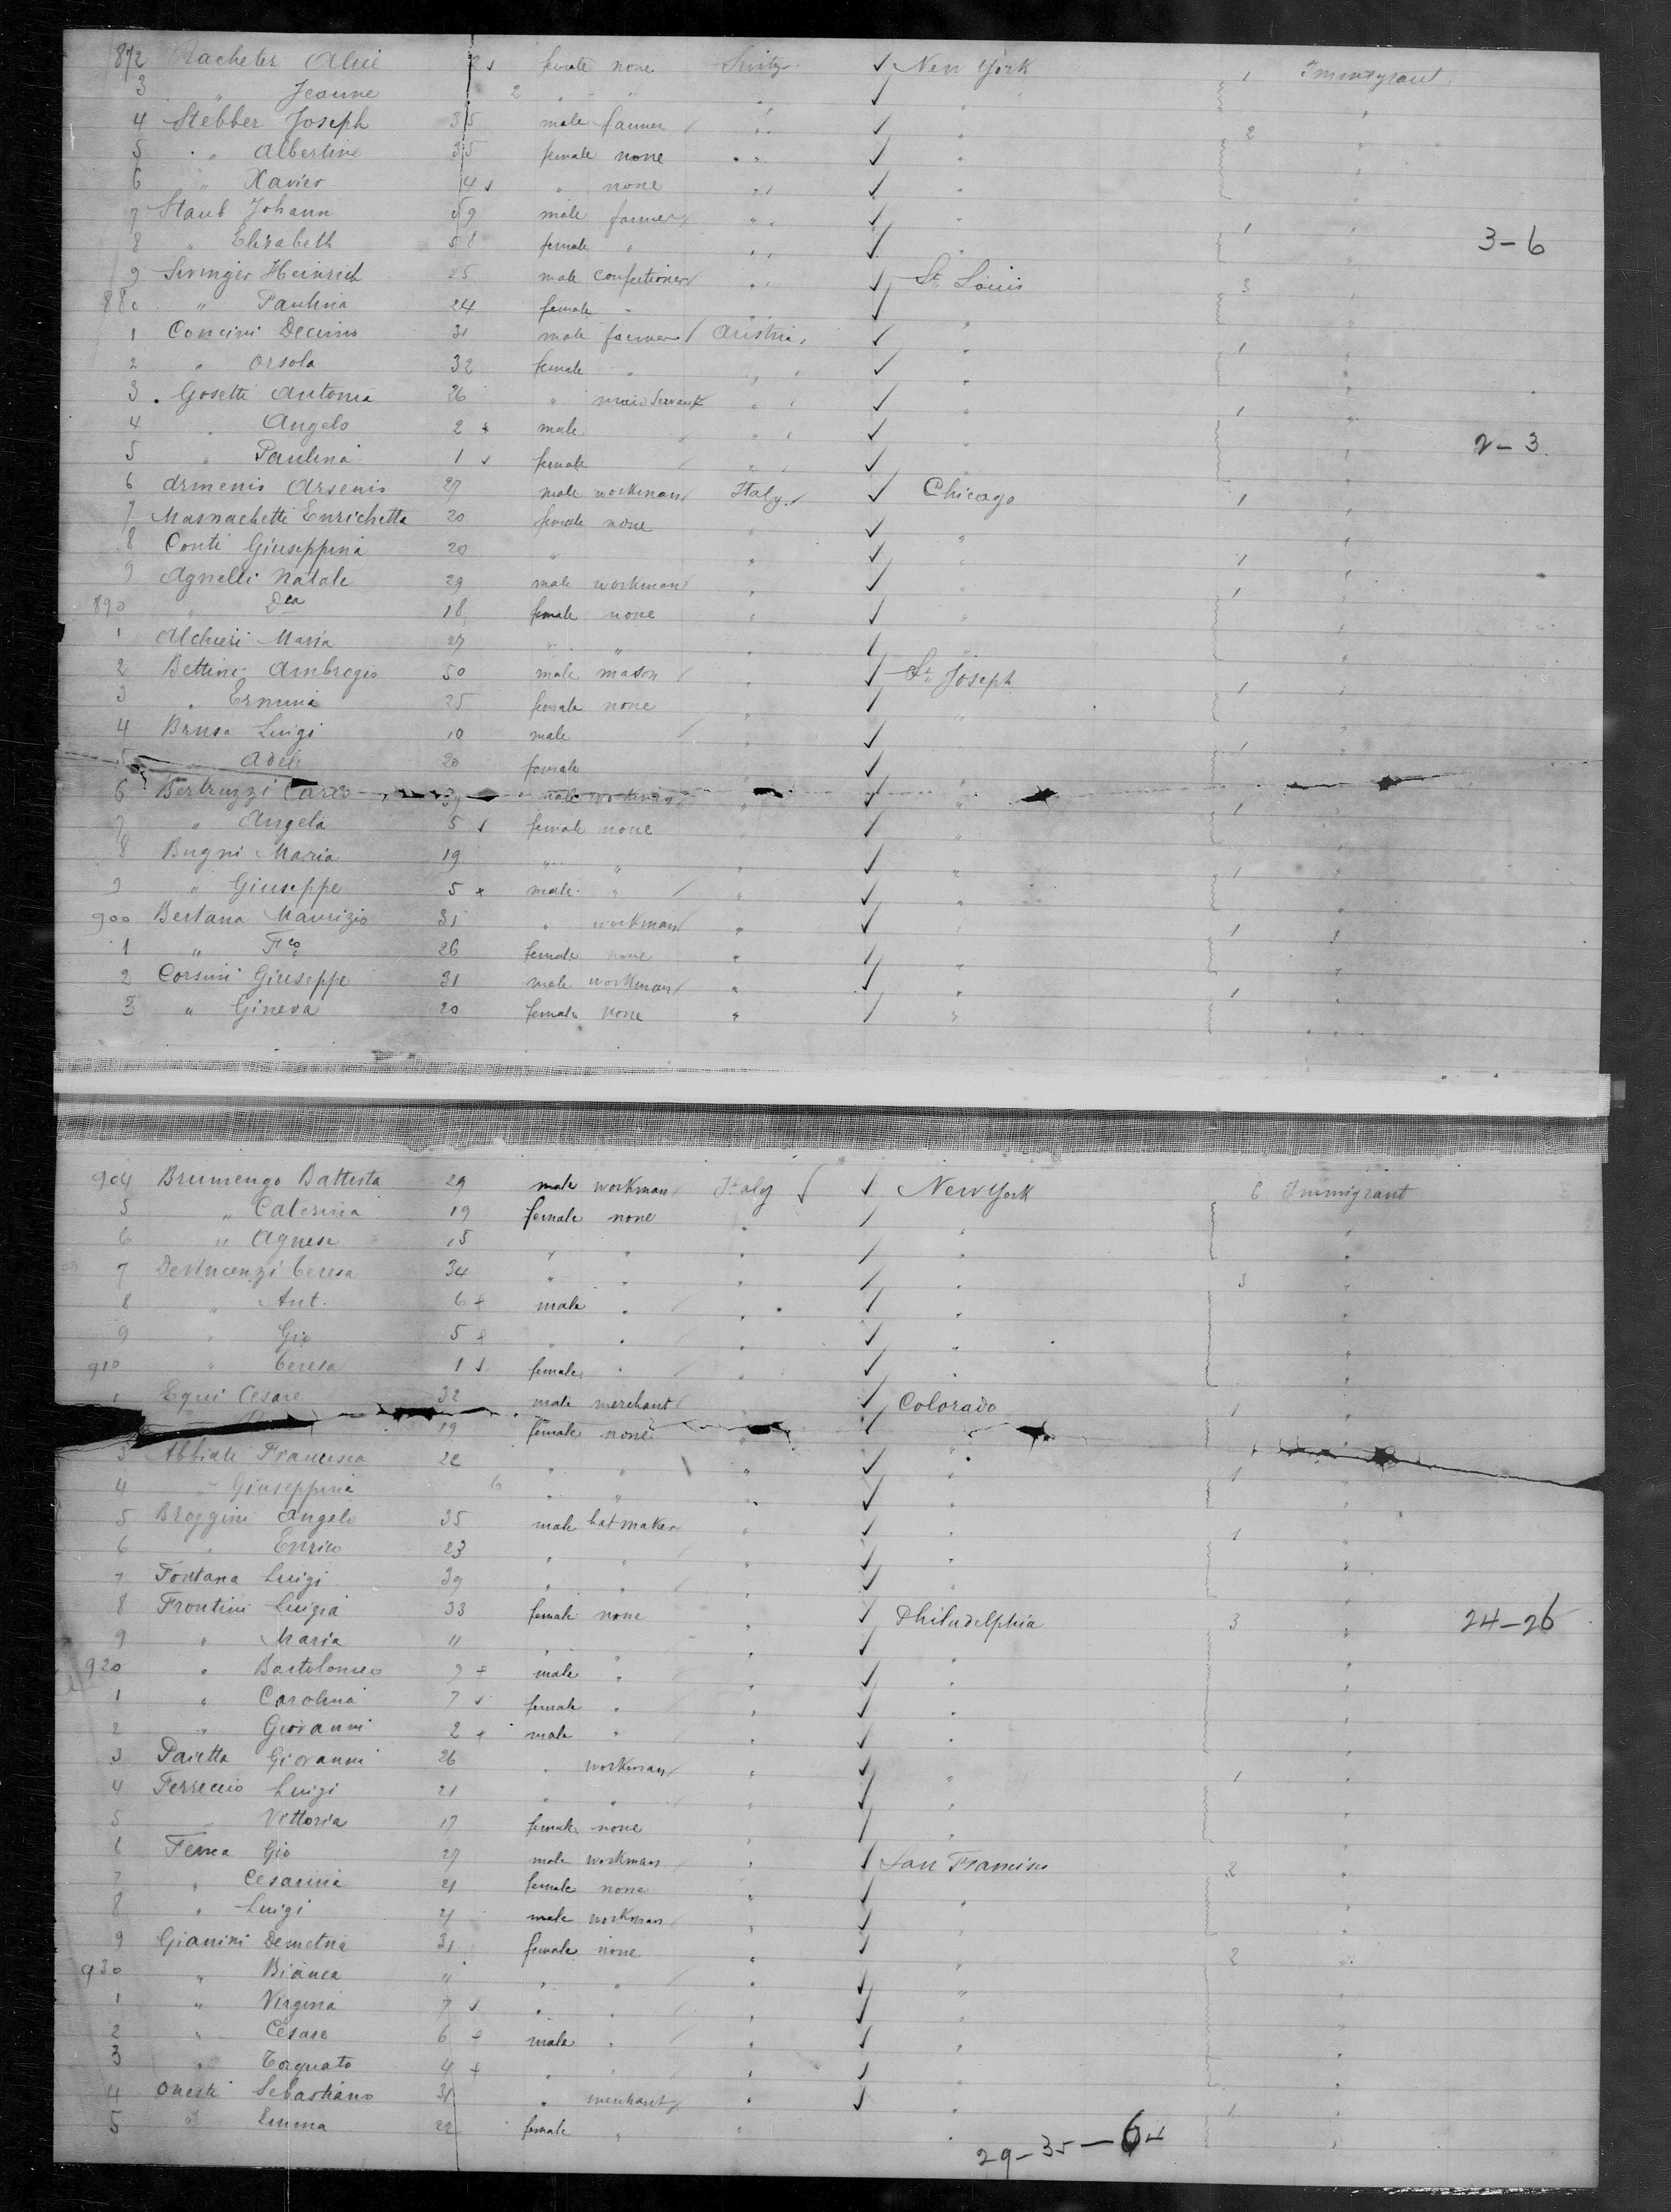 872 Racheter Alice 2 female none Switz. ✓ New York 1 Immigrant
3 " Jeanne 2 " " " ✓ " "
4 Stebber Joseph 35 male farmer " ✓ " 2 "
5 " Albertine 35 female none " ✓ " "
6 " Xavier 4 " none " ✓ " "
7 Staub Johann 59 male farmer " ✓ " 1 "
8 " Elisabeth 51 female " " ✓ " " 3-6
9 Swinger Heinrich 25 male confectioner " ✓ St. Louis 3 "
880 " Paulina 24 female " " ✓ " "
1 Concini Decimo 31 male farmer Austria ✓ " 1 "
2 " Orsola 32 female " " ✓ " "
3 Gosetti Antonia 26 " maid servant " ✓ " 1 "
4 " Angelo 2 + male " ✓ " " 2-3
5 " Paulina 1 ✓ female " ✓ " "
6 Armenio Arsenio 27 male workman Italy ✓ Chicago 1 "
7 Masnachetti Enrichetta 20 female none " ✓ " "
8 Conti Giuseppina 20 " " ✓ " 1 "
9 Agnelli Natale 29 male workman " ✓ " 1 "
890 " Dea 18 female none " ✓ " "
1 Alchieri Maria 27 " " " ✓ " "
2 Bettini Ambrogio 50 male mason " ✓ St. Joseph 1 "
3 " Erminia 25 female none " ✓ " "
4 Brusa Luigi 10 male " ✓ " 1 "
5 " Adele 20 female " ✓ " "
6 Bertruzzi Carlo male workman " ✓ " 1 "
7 " Angela 5 ✓ female none " ✓ " "
8 Bugni Maria 19 " " " ✓ " 1 "
9 " Giuseppe 5 + male " " ✓ " "
900 Bertana Maurizio 31 " workman " ✓ " 1 "
1 " Fco 26 female none " ✓ " "
2 Corsini Giuseppe 31 male workman " ✓ " 1 "
3 " Gineva 20 female none " ✓ " "
904 Brumengo Battista 29 male workman Italy ✓ New York 6 Immigrant
5 " Caterina 19 female none " ✓ " "
6 " Agnese 15 " " " ✓ " "
7 Devincenzi Teresa 34 " " " ✓ " 3 "
8 " Ant. 6 + male " " ✓ " "
9 " Gio 5 + " " " ✓ " "
910 " Teresa 1 ✓ female " " ✓ " "
1 Equi Cesare 32 male merchant " ✓ Colorado 1 "
19 female none " ✓ " "
3 Abbiati Francesca 22 " " " ✓ " 1 "
4 " Giuseppina 6 " " " ✓ " "
5 Broggini Angelo 35 male hatmaker " ✓ " 1 "
6 " Enrico 23 " " " ✓ " "
7 Fontana Luigi 39 " " " ✓ " "
8 Frontini Luigia 33 female none " ✓ Philadelphia 3 " 24-26
9 " Maria 11 " " " ✓ " "
920 " Bartolomeo 9 + male " " ✓ " "
1 " Carolina 7 ✓ female " " ✓ " "
2 " Giovanni 2 + male " " ✓ " "
3 Paietta Giovanni 26 " workman " ✓ " 1 "
4 Ferreccio Luigi 21 " " " ✓ " "
5 " Vittoria 17 female none " ✓ " "
6 Ferrea Gio 27 male workman " ✓ San Francisco 2 "
7 " Cesarina 21 female none " ✓ " "
8 " Luigi 21 male workman " ✓ " "
9 Gianini Demetria 31 female none " ✓ " 2 "
930 " Bianca 11 " " " ✓ " "
1 " Virginia 7 ✓ " " " ✓ " "
2 " Cesare 6 + male " " ✓ " "
3 " Torquato 4 + " " " ✓ " "
4 Onesti Sebastiano 31 " merchant " ✓ " 1 "
5 " Emma 22 female " " " "
29-35-6